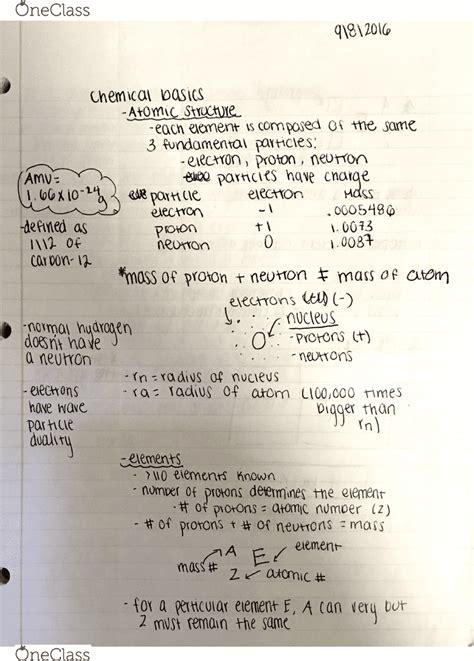 OneClass
9/8/2016
Chemical basics
- Atomic Structure
- each element is composed of the same
3 fundamental particles:
- electron, proton, neutron
particles have charge
AMU =
1.66 x 10^-24 g
- defined as
1/12 of
carbon-12
particle electron Mass
electron -1 .0005486
proton +1 1.0073
neutron 0 1.0087
*mass of proton + neutron ≠ mass of atom
electrons (-)
nucleus
- protons (+)
- neutrons
- normal hydrogen
doesn't have
a neutron
- electrons
have wave
particle
duality
- rn = radius of nucleus
- ra = radius of atom (100,000 times
bigger than
rn)
- elements
- >110 elements known
- number of protons determines the element
- # of protons = atomic number (Z)
- # of protons + # of neutrons = mass
mass # A E element
Z atomic #
- for a perticular element E, A can very but
Z must remain the same
OneClass